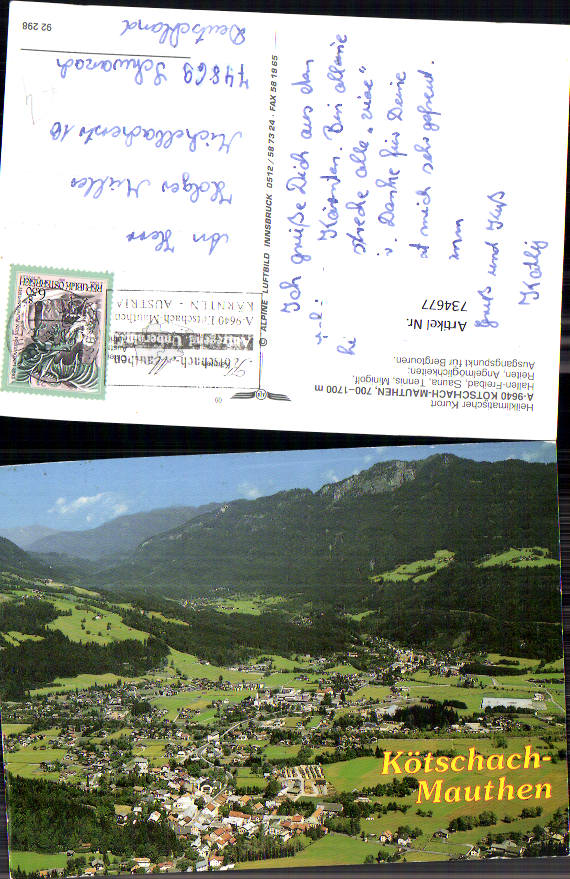 Heilklimatischer Kurort
A-9640 KÖTSCHACH-MAUTHEN, 700–1700 m
Hallen-Freibad, Sauna, Tennis, Minigolf,
Reiten, Angelmöglichkeiten.
Ausgangspunkt für Bergtouren.
Artikel Nr.
734677
Ich grüße Dich aus dan
Kärnten. Bin alleine
strecke alle "viere"
Danke für Deine
at mich sehr gefreut.
Gruß und Kuß
© ALPINE LUFTBILD INNSBRUCK 0512/58 73 24 · FAX 58 18 65
REPUBLIK ÖSTERREICH
A-9640 Kötschach-Mauthen
KÄRNTEN - AUSTRIA
Kötschach-Mauthen
An Herr
Holger Müller
74869 Schwarzach
Deutschland
92 298
Kötschach-
Mauthen